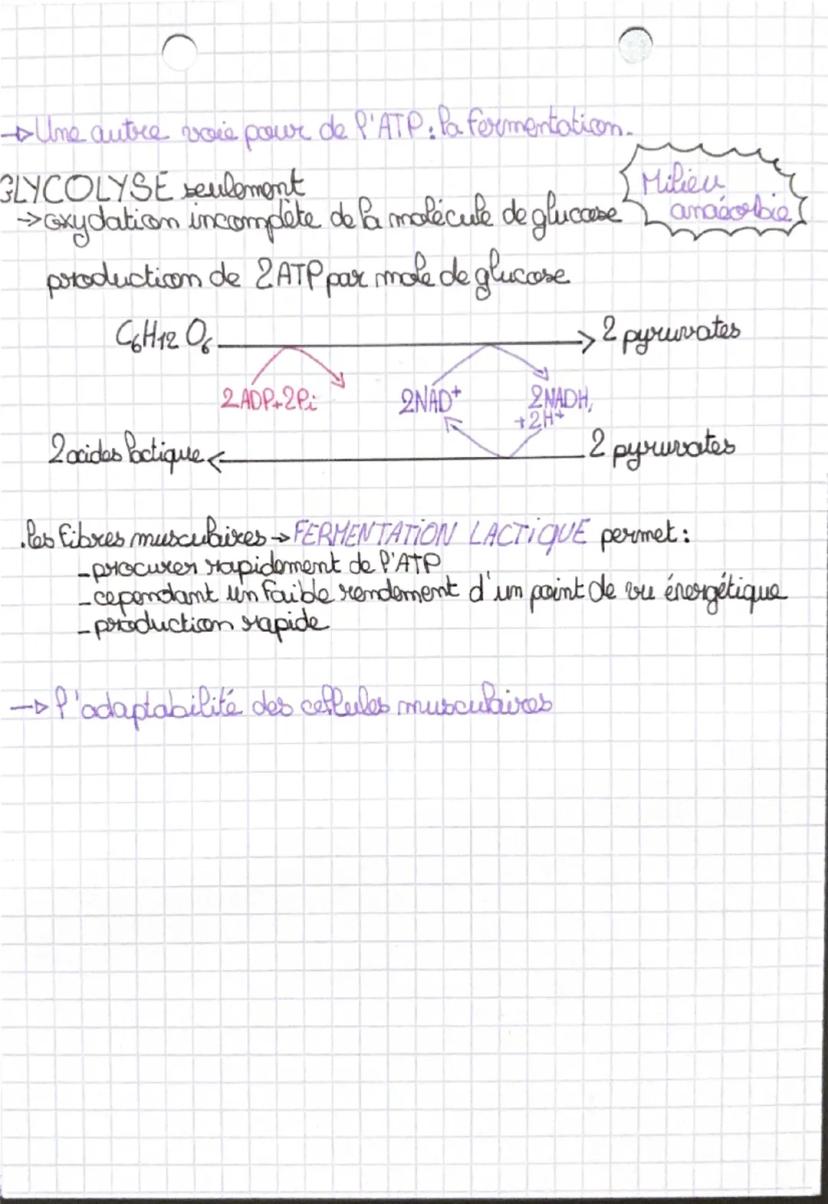 → Une autre voie pour de l'ATP : la fermentation.
GLYCOLYSE seulement
Milieu
anaérobie
→ oxydation incomplète de la molécule de glucose
production de 2 ATP par mole de glucose
C₆H₁₂O₆ → 2 pyruvates
2 ADP+2Pi 2NAD⁺ 2NADH,
+2H⁺
2 acides lactique ← 2 pyruvates
. les fibres musculaires → FERMENTATION LACTIQUE permet :
- procurer rapidement de l'ATP
- cependant un faible rendement d'un point de vu énergétique
- production rapide
→ l'adaptabilité des cellules musculaires